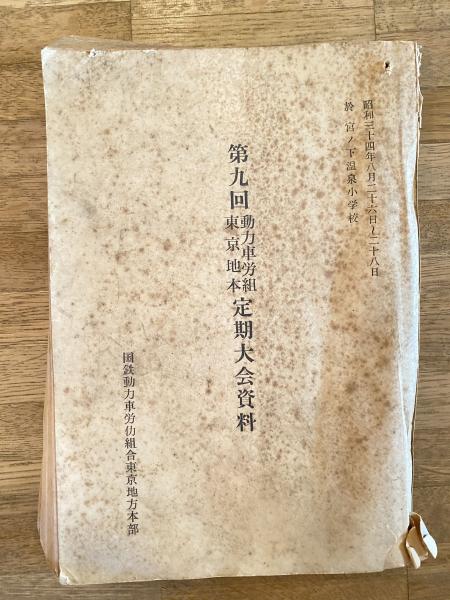 昭和三十四年八月二十六日〜二十八日
於 宮ノ下温泉小学校
第九回 動力車労組東京地本 定期大会資料
国鉄動力車労仂組合東京地方本部